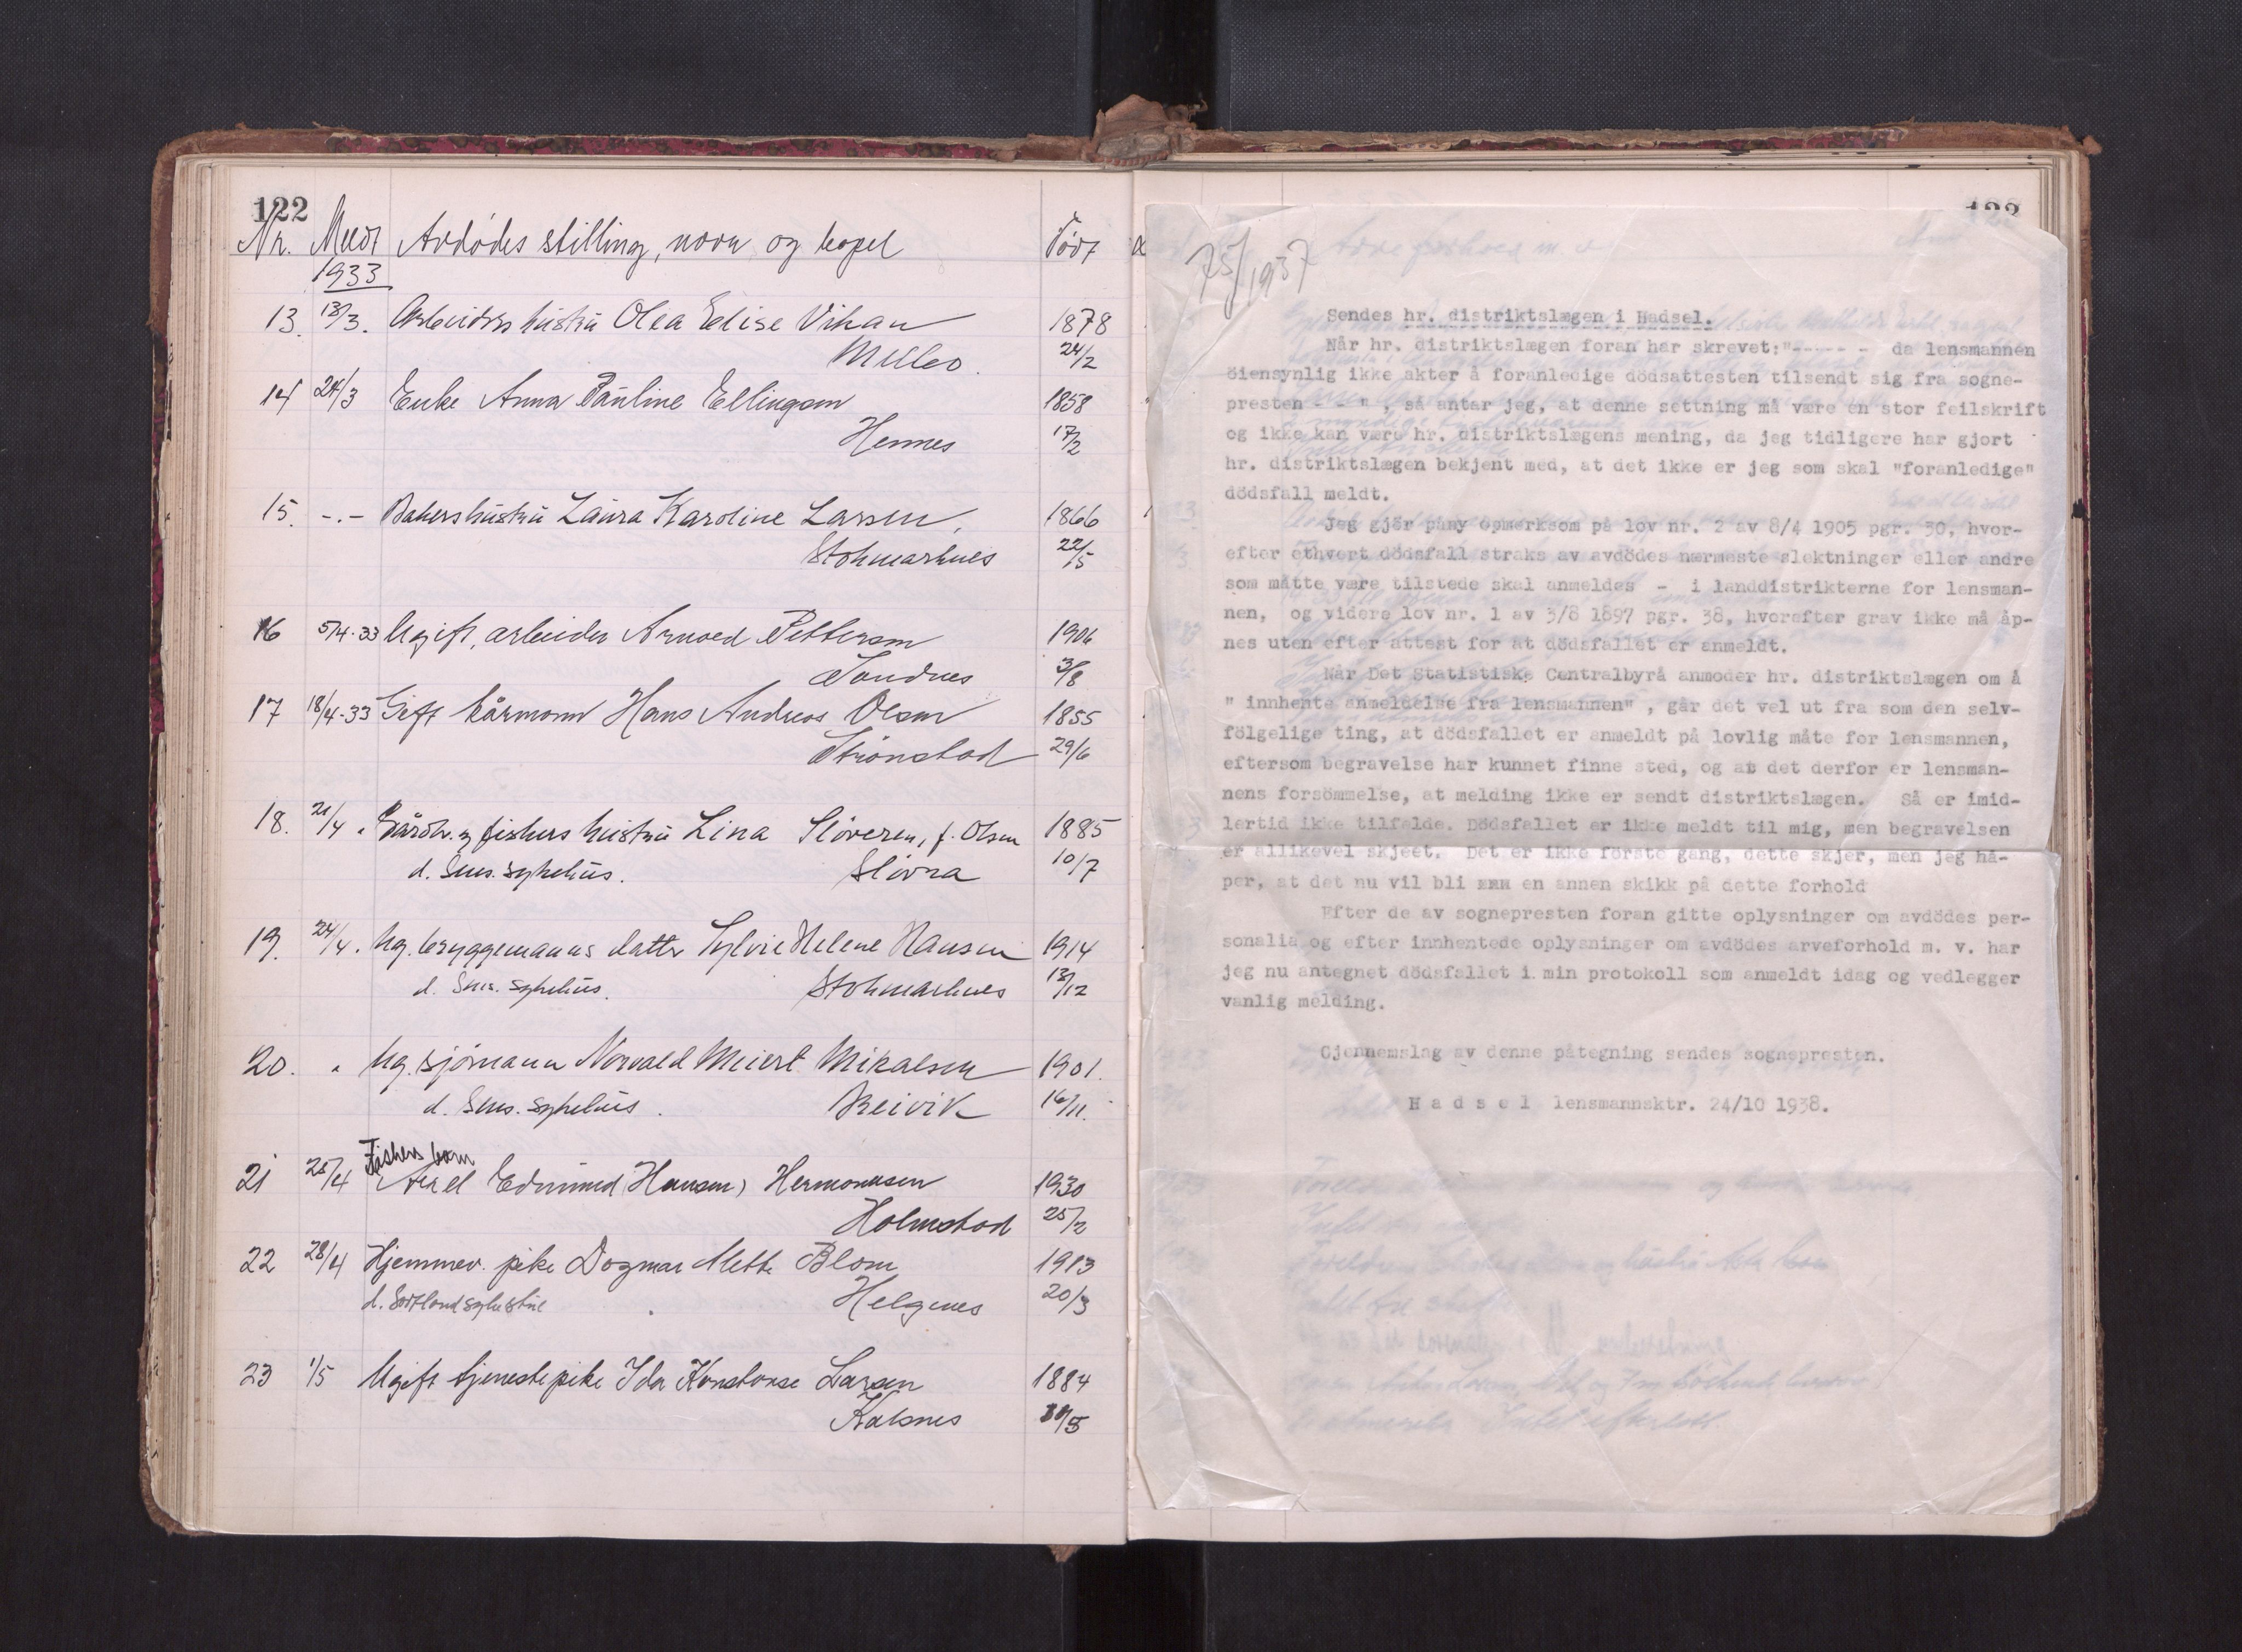 122
Nr. Meldt Avdødes stilling, navn og bopel Født
1933
13. 13/3. Arbeiders hustru Olea Elise Vikan 1878
Melbo. 24/2
14 24/3 Enke Anna Pauline Ellingsen 1858
Hennes 17/2
15. -.- Bakers hustru Laura Karoline Larsen, 1866
Stokmarknes 22/5
16 5/4-33 Ugift, arbeider Arnold Pettersen 1906
Sandnes 3/8
17 18/4-33 Gift kårmann Hans Andreas Olsen 1855
Strønstad 29/6
18. 21/4. Gårdbr. og fiskers hustru Lina Slöveren, f. Olsen 1885
d. Sms. sykehus. Slövra 10/7
19. 24/4. Ug. bryggemanns datter Sylvie Helene Hansen 1914
d. Sms. sykehus. Stokmarknes 13/12
20. " Ug. sjömann Norvald Meiert Mikalsen 1901.
d. Sms. sykehus. Breivik 16/11.
Fiskers barn
21 25/4 Axel Edmund (Hansen) Hermansen 1930
Holmstad 25/2
22 28/4 Hjemmev. pike Dagmar Mette Blom 1913
d. Sortland sykestue Helgenes 20/3
23 1/5 Ugift tjenestepike Ida Konstanse Larsen 1884
Kalsnes /5
123
75/1937
Sendes hr. distriktslægen i Hadsel.
Når hr. distriktslægen foran har skrevet:"----- - da lensmannen
öiensynlig ikke akter å foranledige dödsattesten tilsendt sig fra sogne-
presten - - " , så antar jeg, at denne settning må være en stor feilskrift
og ikke kan være hr. distriktslægens mening, da jeg tidligere har gjort
hr. distriktslægen bekjent med, at det ikke er jeg som skal "foranledige"
dödsfall meldt.
Jeg gjör påny opmerksom på lov nr. 2 av 8/4 1905 pgr. 30, hvor-
efter ethvert dödsfall straks av avdödes nærmeste slektninger eller andre
som måtte være tilstede skal anmeldes - i landdistrikterne for lensman-
nen, og videre lov nr. 1 av 3/8 1897 pgr. 38, hvorefter grav ikke må åp-
nes uten efter attest for at dödsfallet er anmeldt.
Når Det Statistiske Centralbyrå anmoder hr. distriktslægen om å
" innhente anmeldelse fra lensmannen" , går det vel ut fra som den selv-
fölgelige ting, at dödsfallet er anmeldt på lovlig måte for lensmannen,
eftersom begravelse har kunnet finne sted, og at det derfor er lensman-
nens forsömmelse, at melding ikke er sendt distriktslægen. Så er imid-
lertid ikke tilfelde. Dödsfallet er ikke meldt til mig, men begravelsen
er allikevel skjeet. Det er ikke förste gang, dette skjer, men jeg hå-
per, at det nu vil bli xxx en annen skikk på dette forhold
Efter de av sognepresten foran gitte oplysninger om avdödes per-
sonalia og efter innhentede oplysninger om avdödes arveforhold m. v. har
jeg nu antegnet dödsfallet i min protokoll som anmeldt idag og vedlegger
vanlig melding.
Gjennemslag av denne påtegning sendes sognepresten.
H a d s e l lensmannsktr. 24/10 1938.